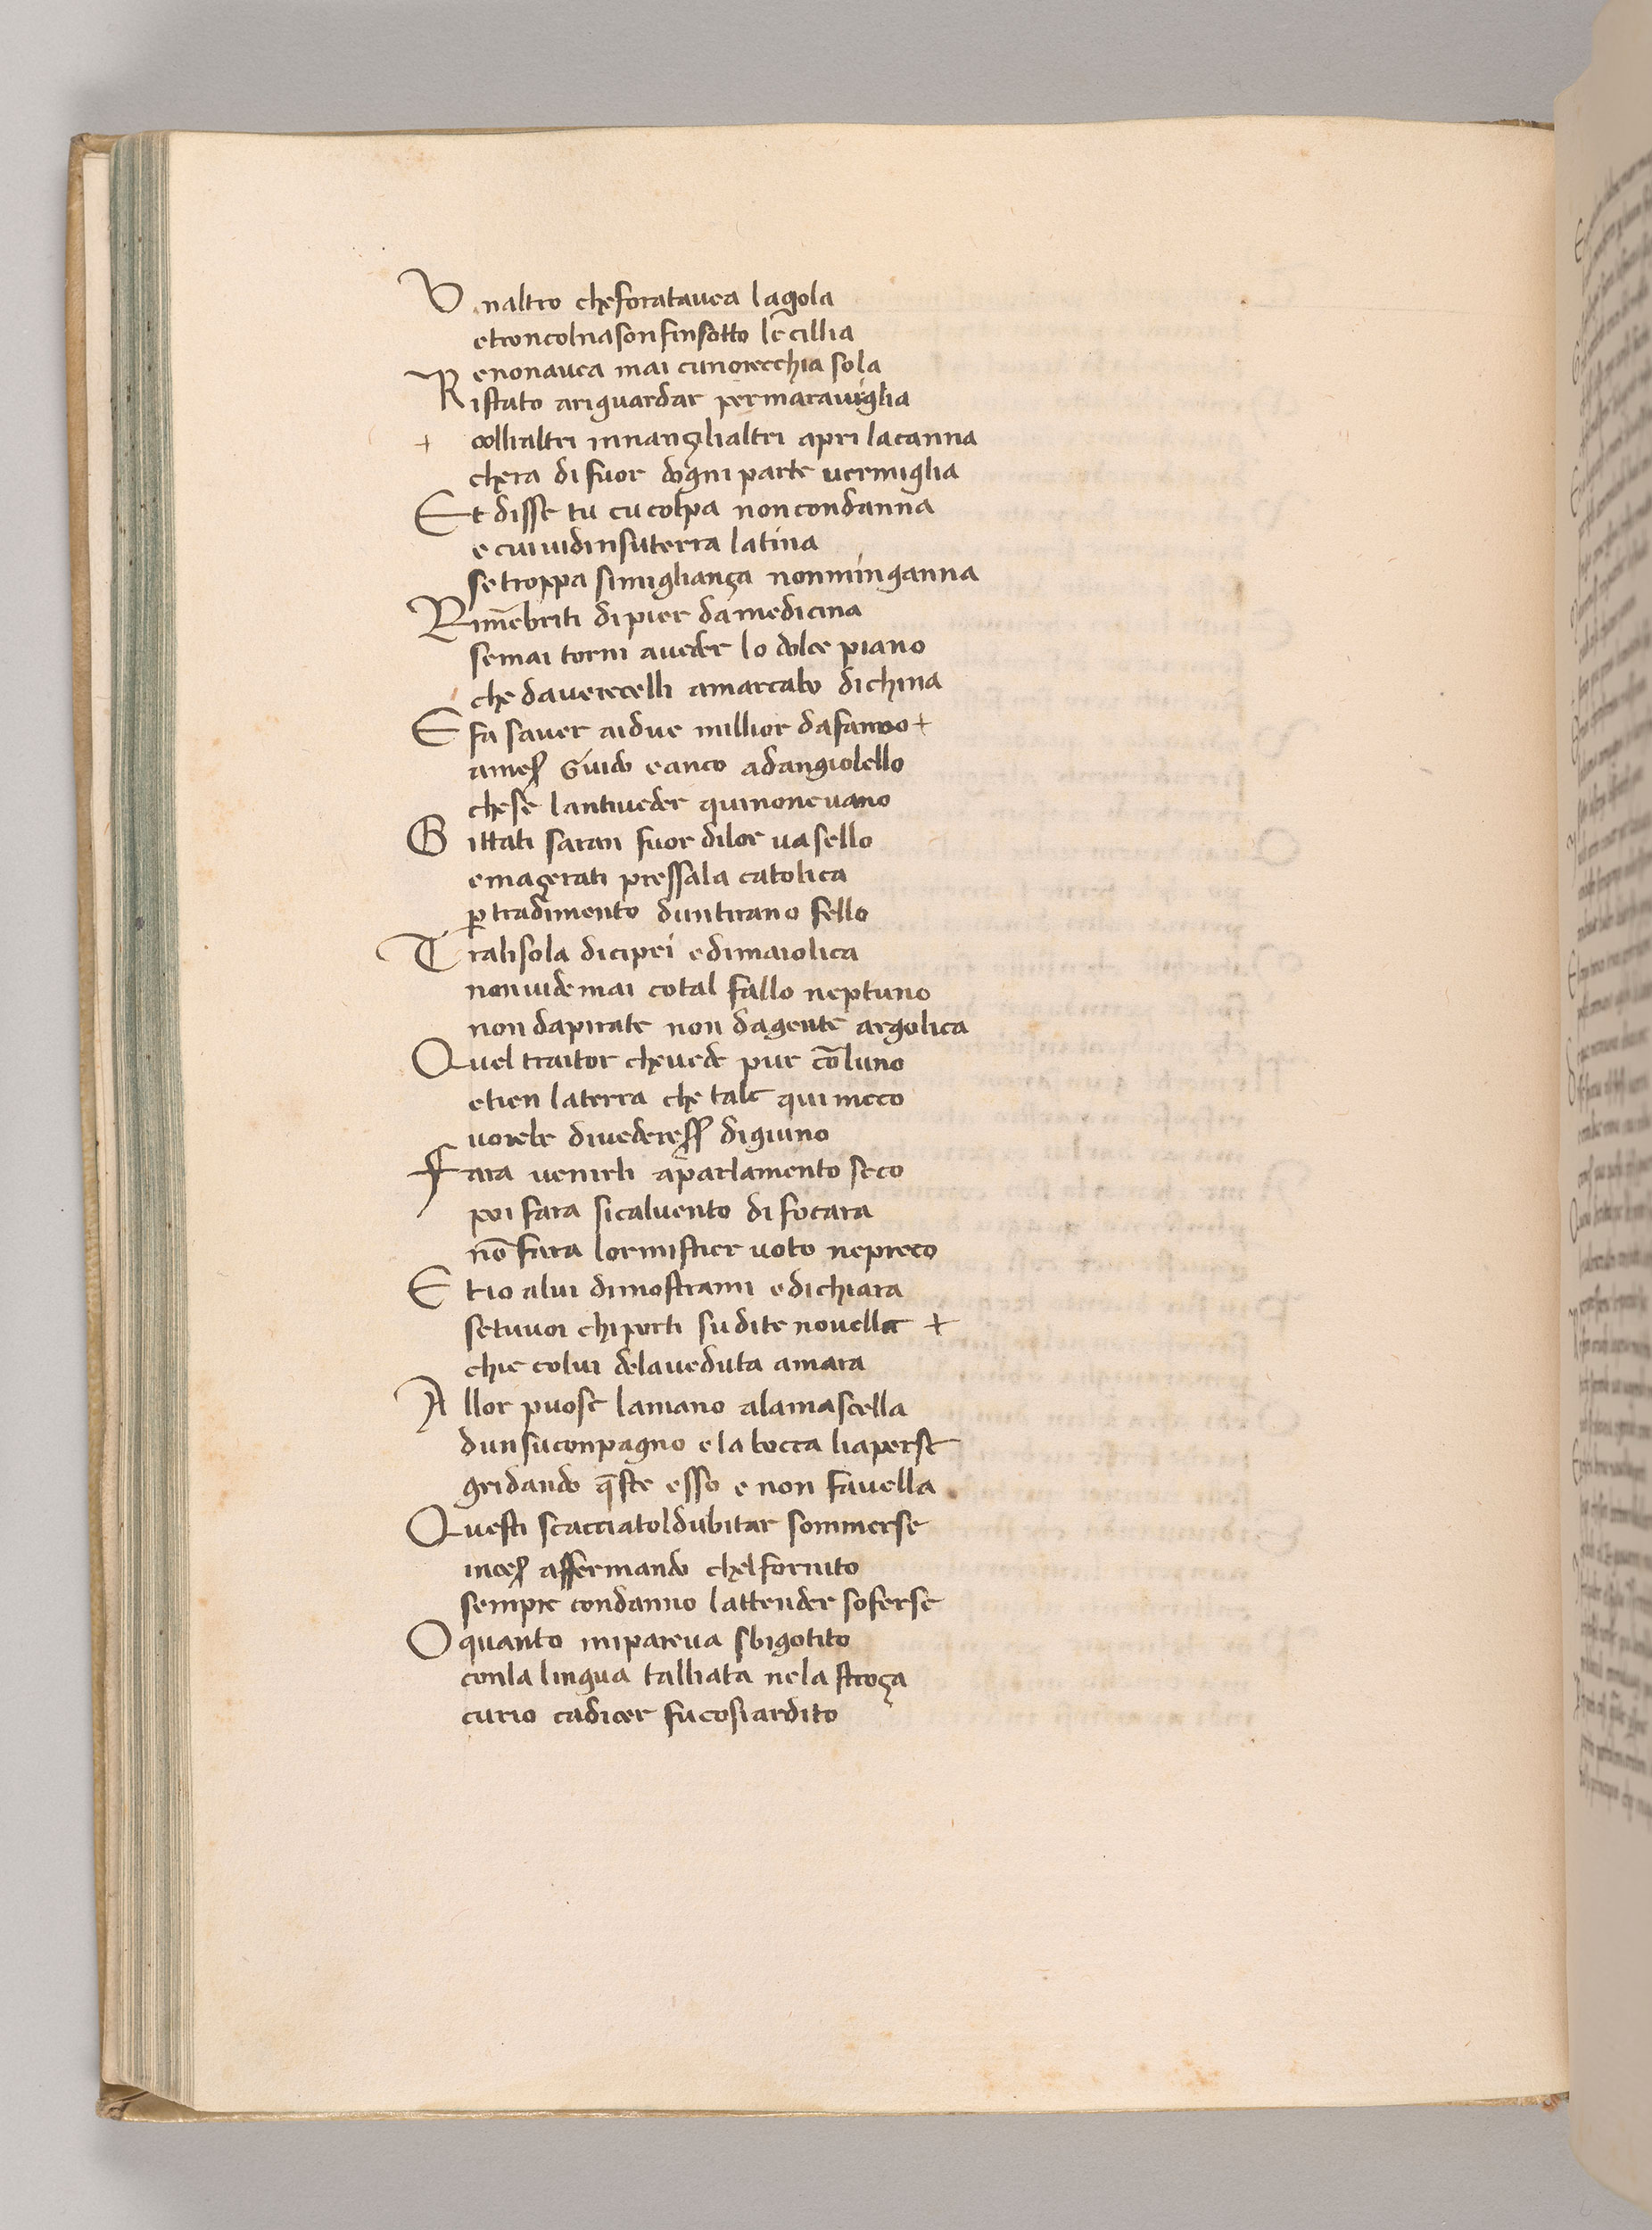 Vnaltro cheforatauea lagola
etroncolnasonfinsotto le cillia
enonauea mai cunorecchia sola
Ristato ariguardar permarauiglia
+ collialtri innançlialtri apri lacanna
chera di fuor dogni parte uermiglia
Et disse tu cu colpa non condanna
e cui uidinsuterra latina
se troppa simigliança nonminganna
Rim̄ebriti di pier da medicina
semai torni aueder lo dolce piano
che dauercelli amarcabo dichina
E fa sauer aidue millior dafanno +
ameſſ Guido eanco adangiolello
chese lantiueder quinoneuano
Gittati saran fuor dilor uasello
emaçerati pressala catolica
ꝑ tradimento duntirano fello
Tralisola dicipri edimaiolica
nonuide mai cotal fallo neptuno
non dapirate non dagente argolica
Quel traitor cheuede pur cōluno
etien laterra che tale qui meco
uorebe diuedereſſ digiuno
Fara uenirli aparlamento seco
poi fara sicaluento di focara
nō fara lormistier uoto nepreco
Etio alui dimostrami edichiara
setuuoi chi porti su dite nouella +
chie colui delaueduta amara
Allor puose lamano alamascella
dunsuconpagno e la bocca liaperse
gridando q̄ste esso e non fauella
Questi scacciatoldubitar sommerse
inceſ affermando chelfornito
sempre condanno lattender soferse
O quanto mipareua sbigotito
conla lingua talliata nela stroça
curio cadicer fucosiardito